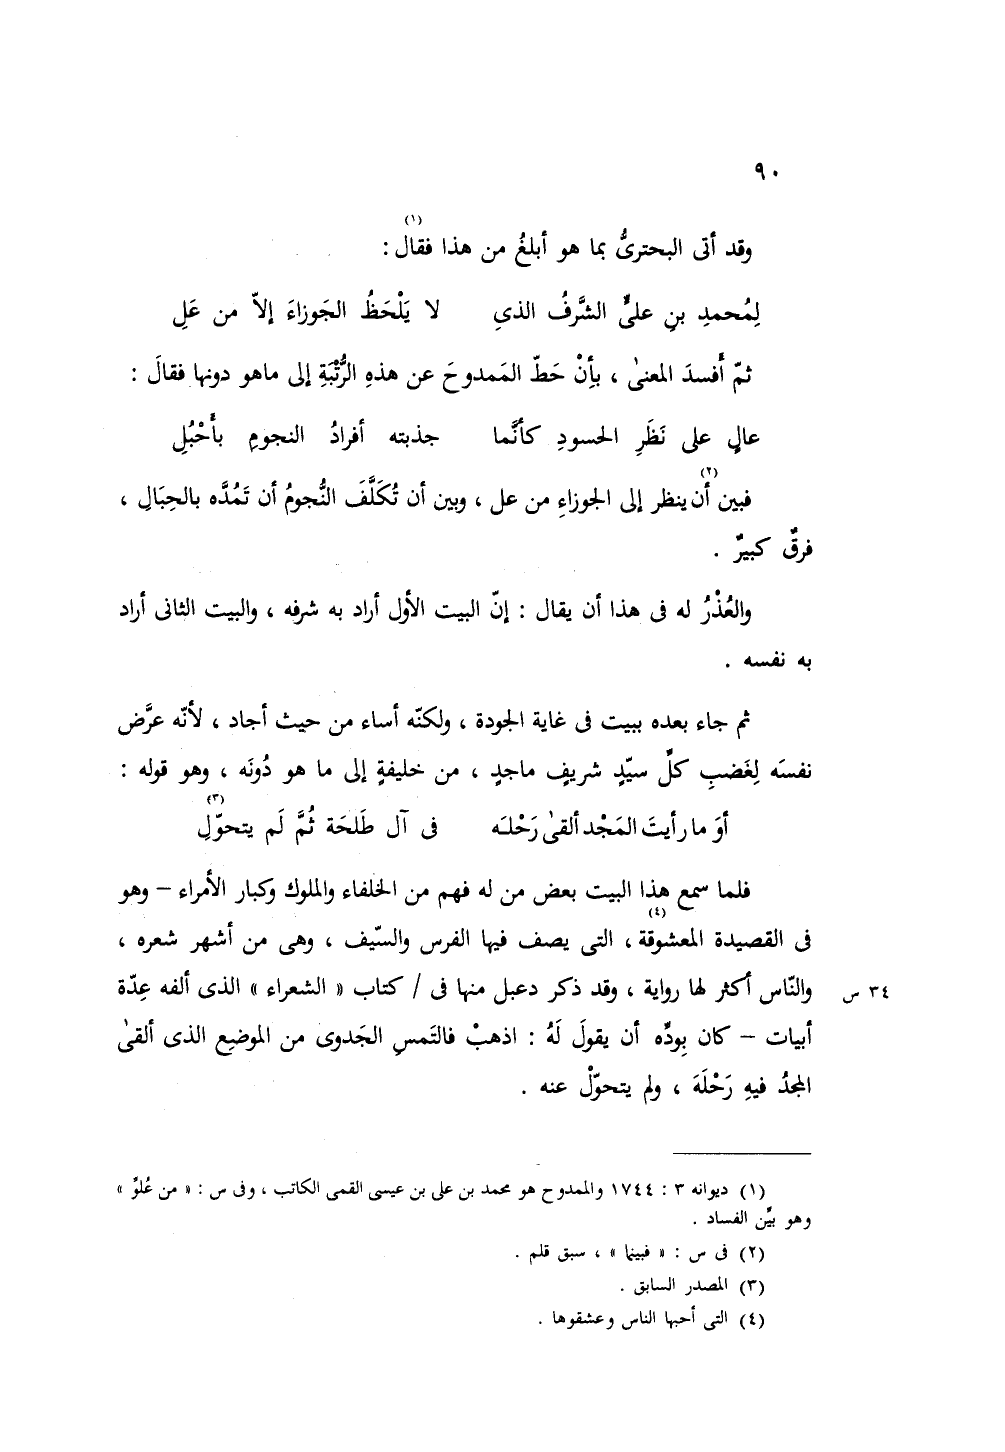 ٩٠
وقد أتى البحترىُّ بما هو أبلغُ من هذا فقال (١) :
لِمُحمدِ بنِ علىٍّ الشَّرفُ الذىِ لا يَلْحَظُ الجَوزاءَ إلاّ من عَلِ
ثمّ أَفسدَ المعنىٰ ، بأِنْ حَطّ المَمدوحَ عن هذهِ الرُّتْبَةِ إلى ماهو دونها فقالَ :
عالٍ على نَظَرِ الحسودِ كأنَّما جذبته أفرادُ النجومِ بأَحْبُلِ
فبين (٢) أن ينظر إلى الجوزاءِ من عل ، وبين أن تُكَلَّفَ النُّجومُ أن تَمُدَّه بالحِبَالِ ،
فرقٌ كبيرٌ .
والعُذْرُ له فى هذا أن يقال : إنّ البيت الأول أراد به شرفه ، والبيت الثانى أراد
به نفسه .
ثم جاء بعده ببيت فى غاية الجودة ، ولكنّه أساء من حيث أجاد ، لأنّه عرَّض
نفسَه لِغَضبِ كلِّ سيّدٍ شريفٍ ماجدٍ ، من خليفةٍ إلى ما هو دُونَه ، وهو قوله :
أوَ ما رأيتَ المَجْد ألقىٰ رَحْلـَه فى آل طَلحَة ثُمَّ لَم يتحوّلِ (٣)
فلما سمع هذا البيت بعض من له فهم من الخلفاء والملوك وكبار الأمراء – وهو
فى القصيدة المعشوقة (٤) ، التى يصف فيها الفرس والسّيف ، وهى من أشهر شعره ،
والنّاس أكثر لها رواية ، وقد ذكر دعبل منها فى / كتاب « الشعراء » الذى ألفه عِدّة ٣٤ س
أبيات – كان بِودِّه أن يقولَ لَهُ : اذهبْ فالتَمسِ الجَدوى من الموضِع الذى ألقىٰ
المجدُ فيهِ رَحْلَهَ ، ولم يتحوّلْ عنه .
(١) ديوانه ٣ : ١٧٤٤ والممدوح هو محمد بن على بن عيسى القمى الكاتب ، وفى س : « من عُلوٍّ »
وهو بيِّن الفساد .
(٢) فى س : « فبينما » ، سبق قلم .
(٣) المصدر السابق .
(٤) التى أحبها الناس وعشقوها .